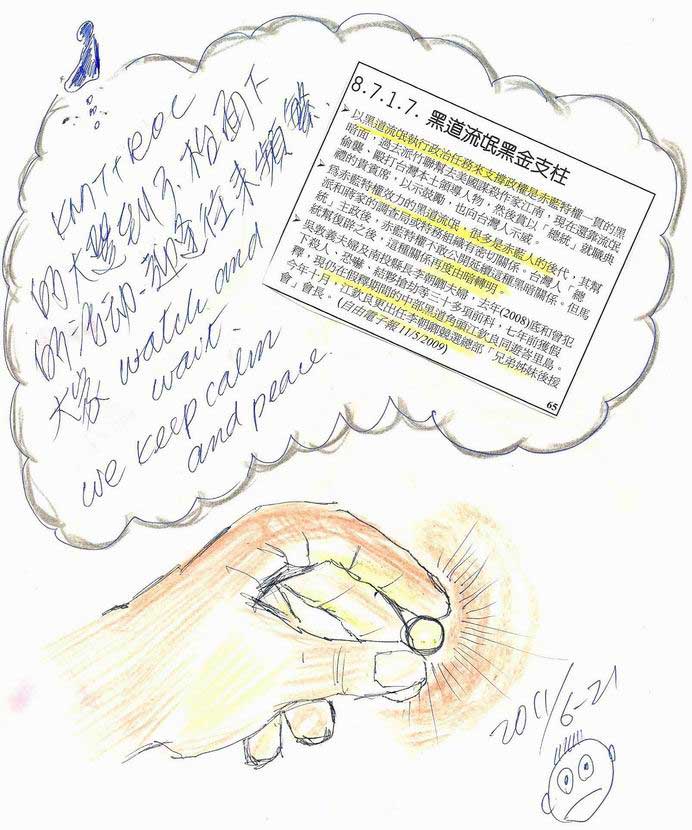 KMT+ROC
的大選到了,枱面下
的活动 往來頻繁.
大家 watch and
wait.
we keep calm
and peace.
8.7.1.7. 黑道流氓黑金支柱
➢以黑道流氓執行政治任務來支撐政權是赤藍特權一貫的黑
暗面,過去派竹聯幫去美國謀殺作家江南,現在還靠流氓
偷襲、毆打台灣本土領導人物,然後賞以「總統」就職典
禮的貴賓席,以示鼓勵,也向台灣人示威。
➢為赤藍特權效力的黑道流氓,很多是赤藍人的後代,其幫
派和蔣家的調查局或特務組織有密切關係。台灣人「總
統」主政後,赤藍特權不敢公開延續這種黑暗關係。但馬
統幫復辟之後,這種關係再度由暗轉明。
➢吳敦義夫婦及南投縣長李朝卿夫婦,去年(2008)底和曾犯
下殺人、恐嚇、結夥搶劫等三十多項前科,七年前獲假
釋,現仍在假釋期間的中部黑道角頭江欽良同遊峇里島。
今年十月,江欽良又出任李朝卿競選總部「兄弟姊妹後援
會」會長。(自由電子報 11/5/2009)
65
2011/6-21